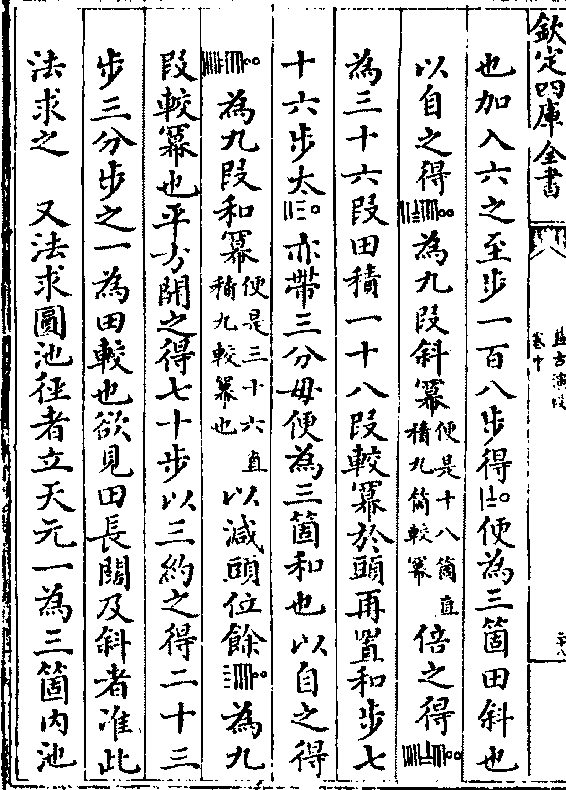 欽定四庫全書
益古演段
卷中
也加入六之至步一百八步得 便為三箇田斜也
以自之得 為九段斜冪便是十八箇直積九箇較冪倍之得
為三十六段田積一十八段較冪於頭再置和步七
十六步太 亦帶三分母便為三箇和也以自之得
為九段和冪便是三十六直積九較冪也以減頭位餘 為九
段較冪也平方開之得七十步以三約之得二十三
步三分步之一為田較也欲見田長闊及斜者准此
法求之 又法求圓池徑者立天元一為三箇內池